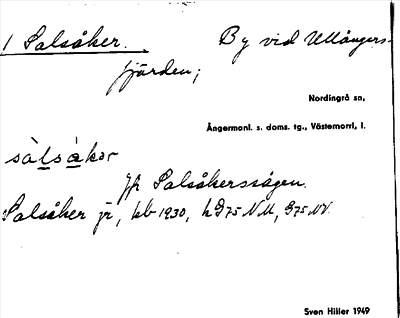 1 Salsåker. By vid Ullångers-
fjärden;
Nordingrå sn,
Ångermanl. s. doms. tg., Västernorrl. l.
sàlsàkər
Jfr Salsåkerssågen.
Salsåker jr, kb 1930, hG75 NU, G75 NV.
Sven Hiller 1949